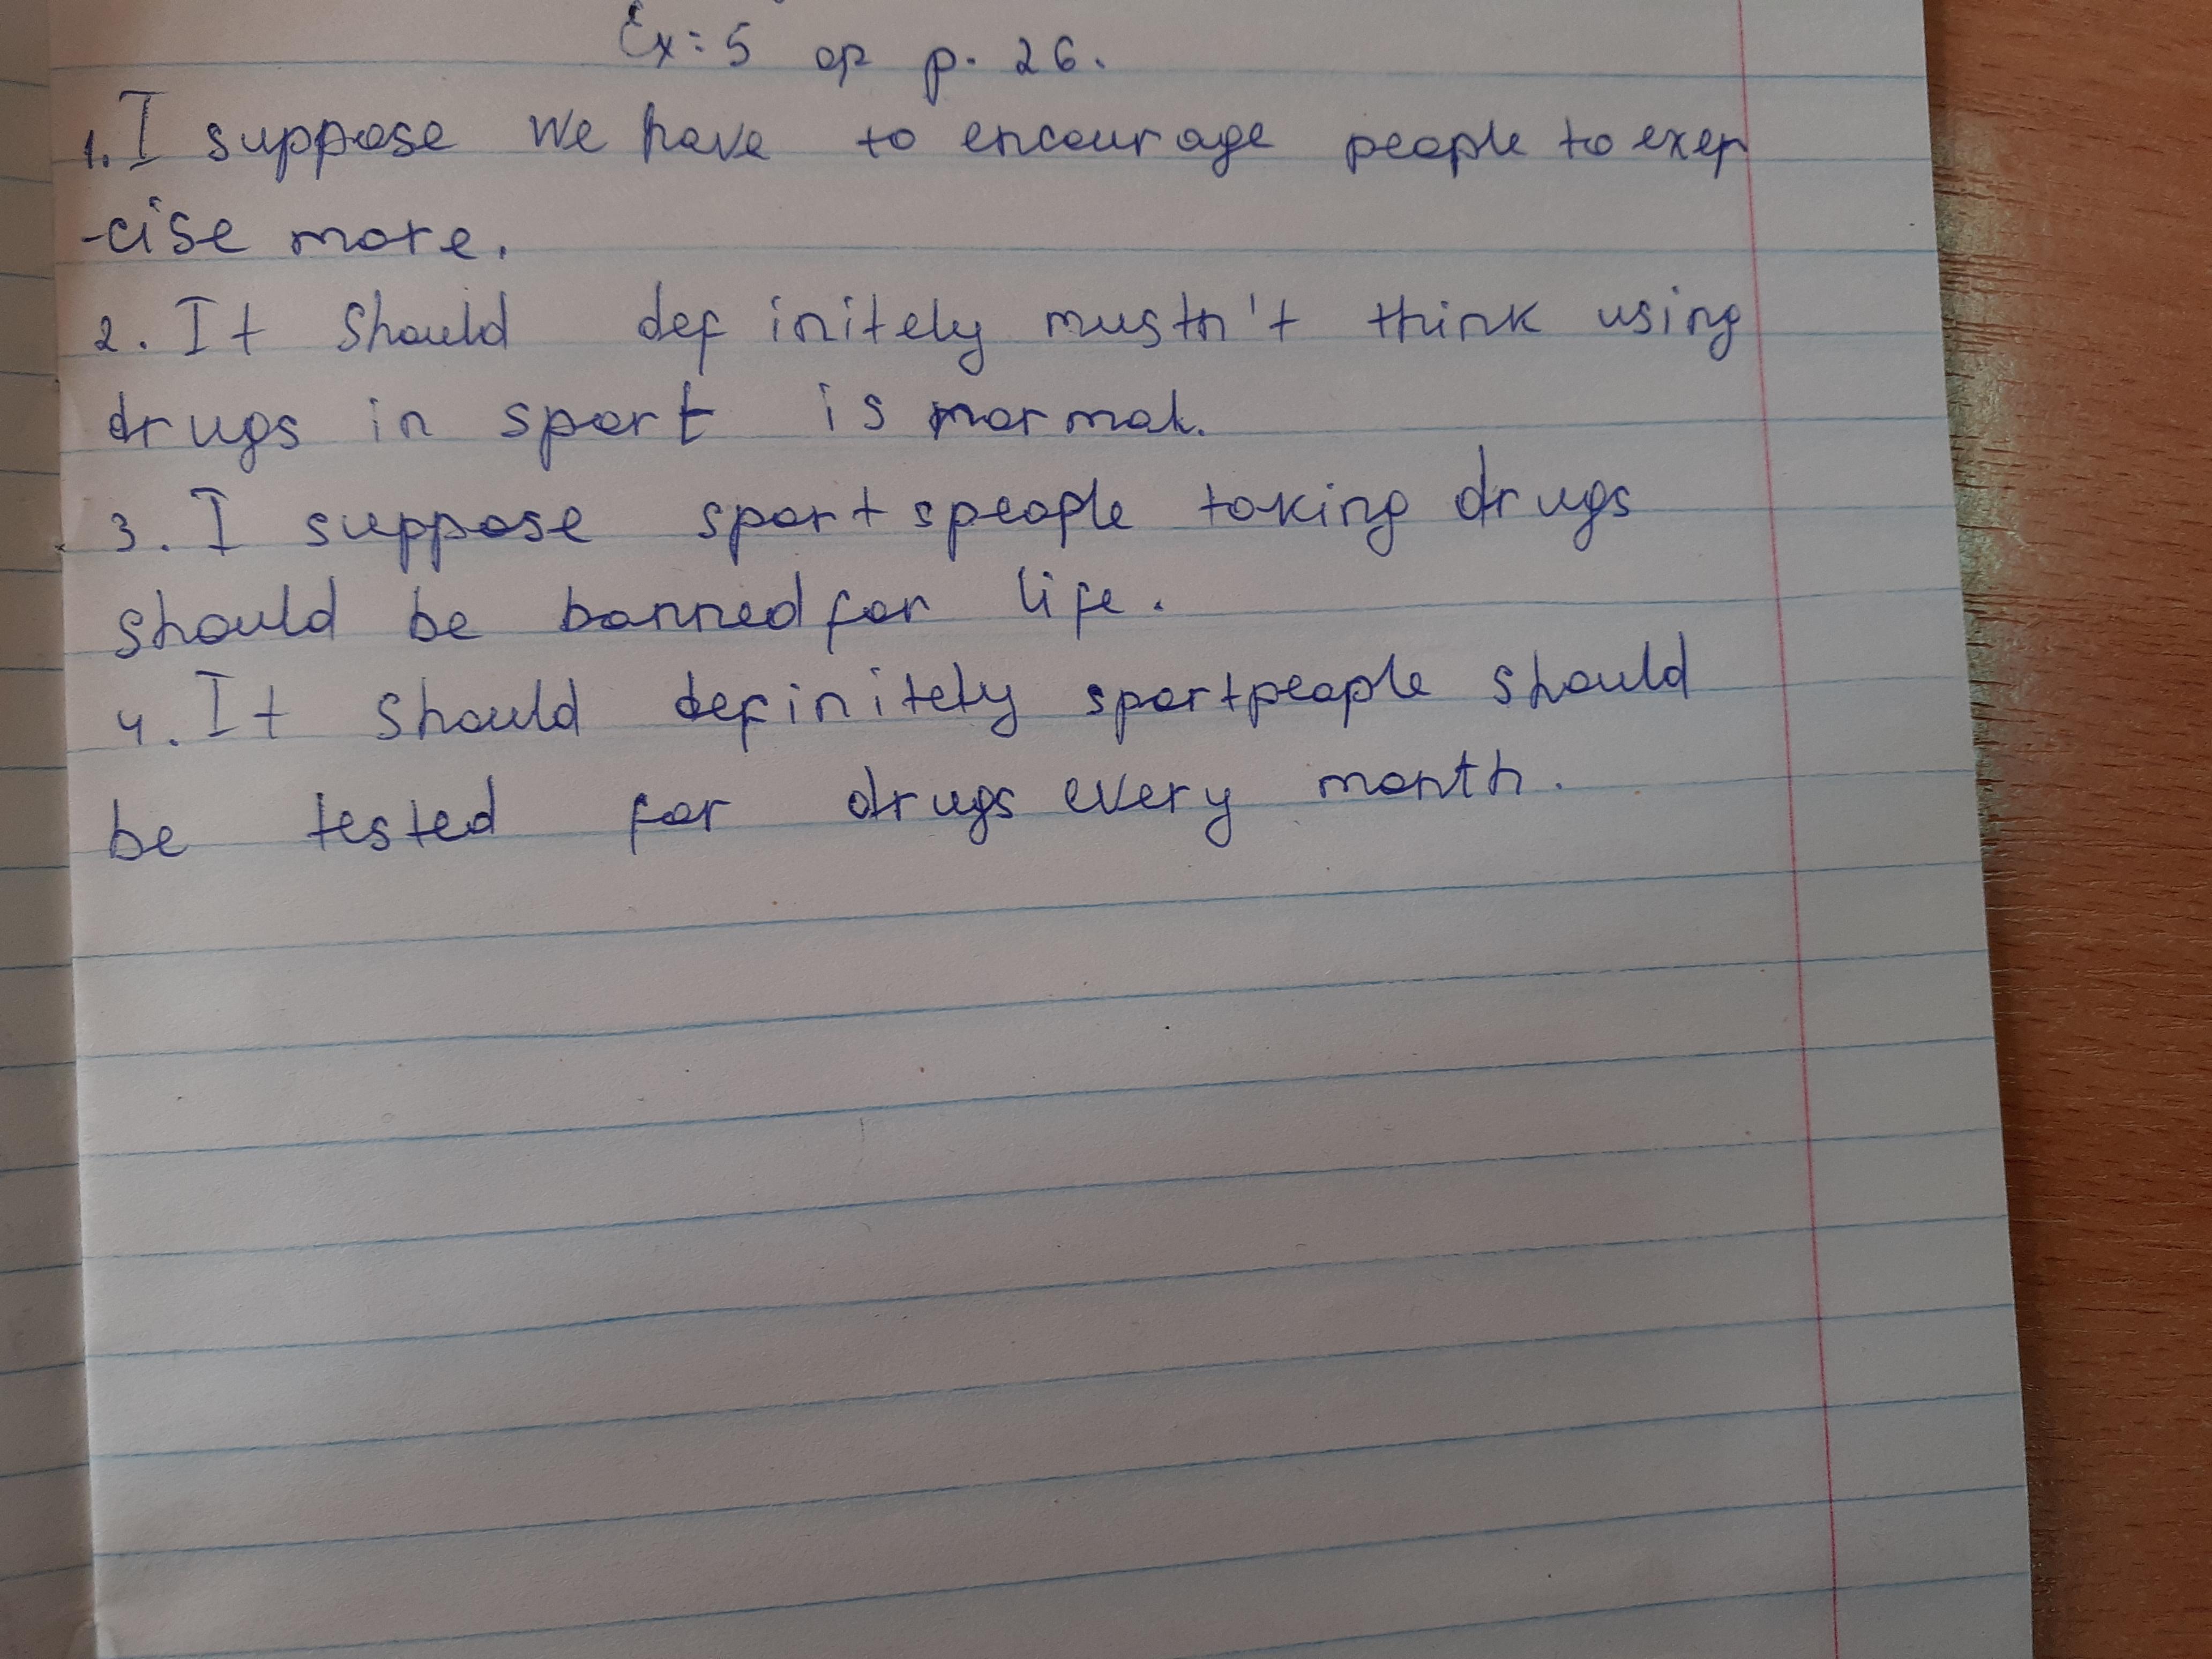 Ex: 5 op p. 26.
1. I suppose we have to encourage people to exer
-cise more.
2. It should definitely mustn't think using
drugs in sport is normal.
3. I suppose sportspeople taking drugs
should be banned for life.
4. It should definitely sportpeople should
be tested for drugs every month.